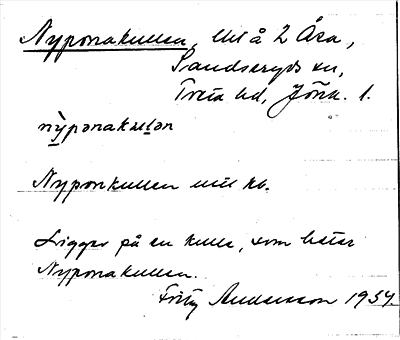 Nyponakullen, lht å 2 Åsa,
Sandseryds sn,
Tveta hd, Jönk. l.
nỳponakulən
Nyponkullen enl kb.
Ligger på en kulle, som heter
Nyponakullen.
Fritz Andersson 1934.